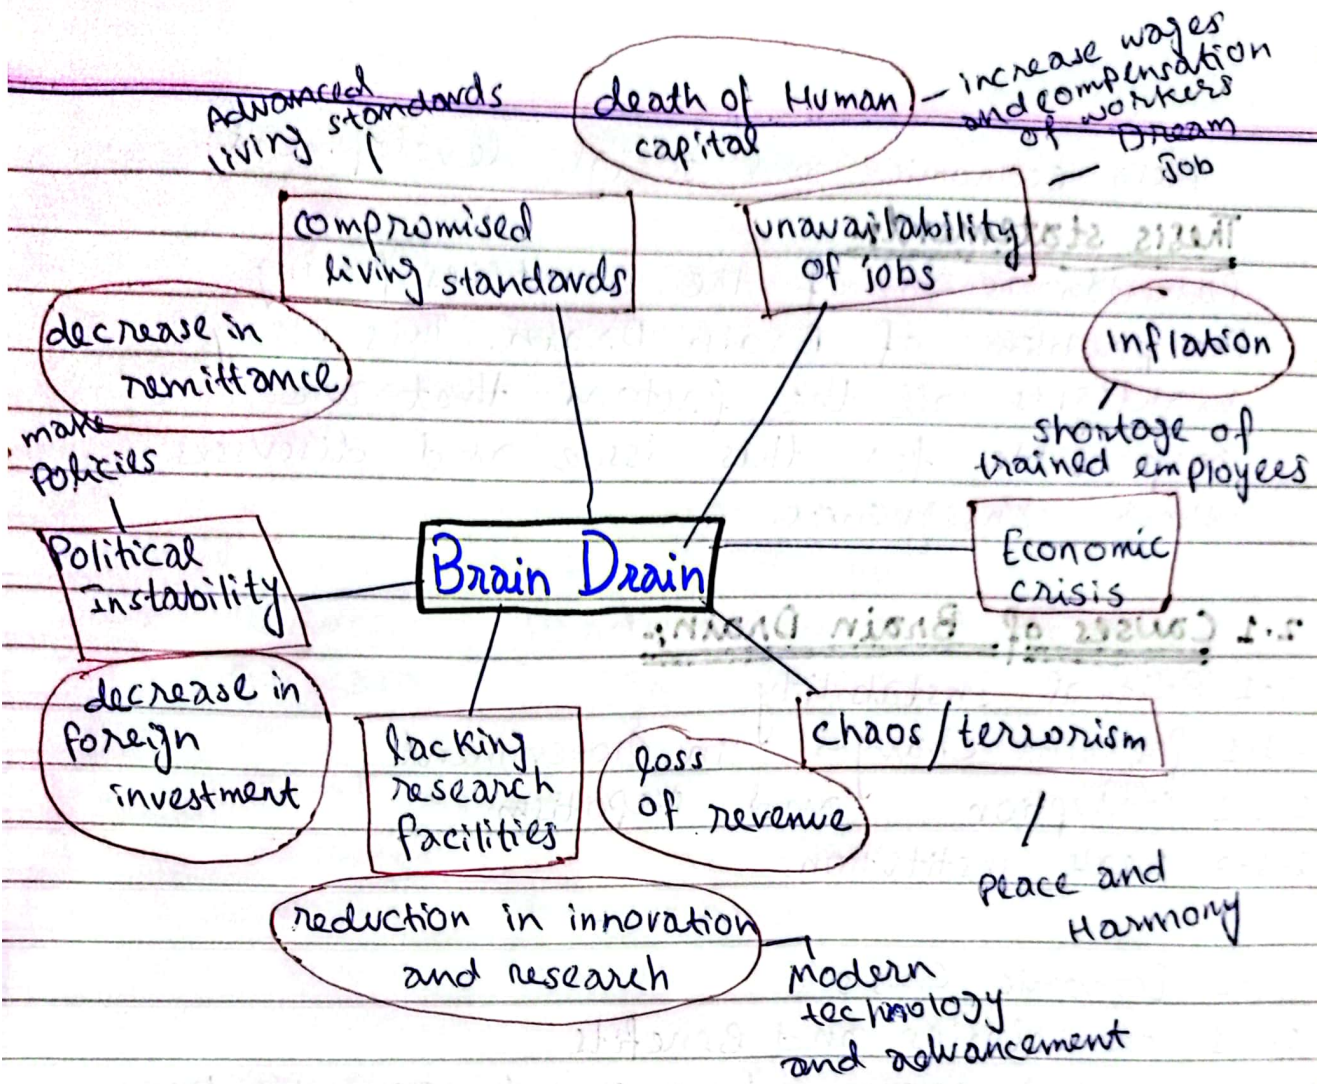 Advanced
living standards
death of Human
capital
increase wages
and compensation
of workers
Dream
job
compromised
living standards
unavailability
of jobs
Thesis
decrease in
remittance
inflation
make
policies
shortage of
trained employees
Political
Instability
Brain Drain
Economic
crisis
2.1 Causes of Brain Drain:
decrease in
foreign
investment
lacking
research
facilities
loss
of revenue
chaos/terrorism
peace and
Harmony
reduction in innovation
and research
Modern
technology
and advancement